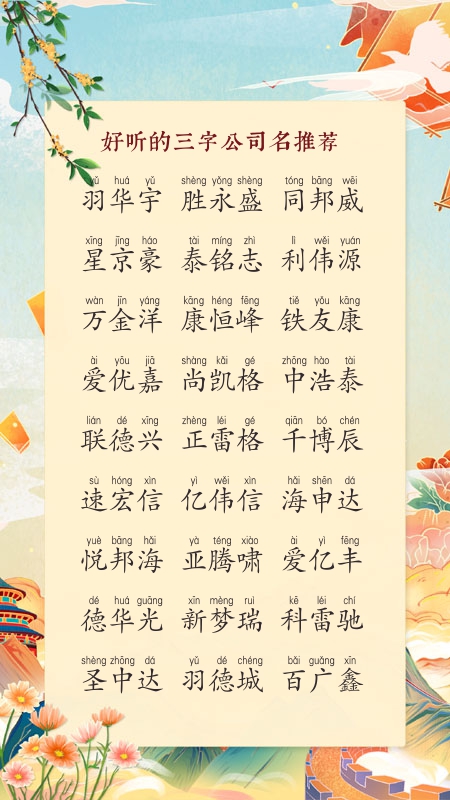 好听的三字公司名推荐
yǔ huá yǔ shèng yǒng shèng tóng bāng wēi
羽华宇 胜永盛 同邦威
xīng jīng háo tài míng zhì lì wěi yuán
星京豪 泰铭志 利伟源
wàn jīn yáng kāng héng fēng tiě yǒu kāng
万金洋 康恒峰 铁友康
ài yōu jiā shàng kǎi gé zhōng hào tài
爱优嘉 尚凯格 中浩泰
lián dé xīng zhèng léi gé qiān bó chén
联德兴 正雷格 千博辰
sù hóng xìn yì wěi xìn hǎi shēn dá
速宏信 亿伟信 海申达
yuè bāng hǎi yà téng xiào ài yì fēng
悦邦海 亚腾啸 爱亿丰
dé huá guāng xīn mèng ruì kē léi chí
德华光 新梦瑞 科雷驰
shèng zhōng dá yǔ dé chéng bǎi guǎng xīn
圣中达 羽德城 百广鑫